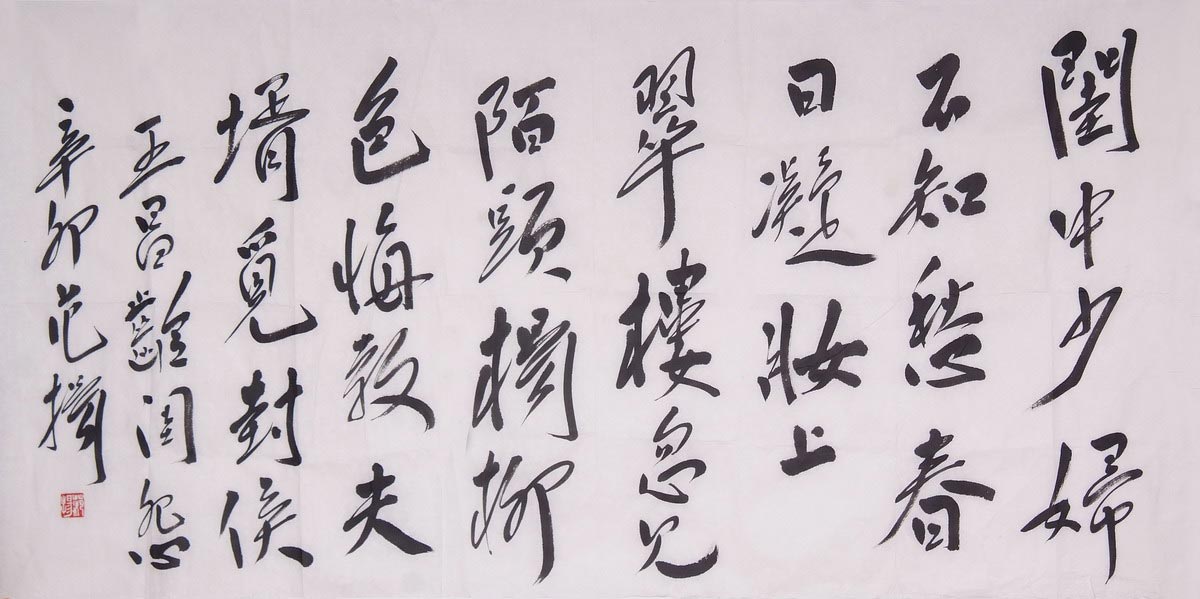 閨中少婦
不知愁春
日凝妝上
翠樓忽見
陌頭楊柳
色悔教夫
壻覓封侯
王昌齡閨怨
辛卯范揚